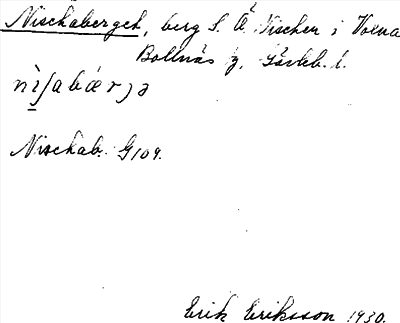 Nischaberget, berg S. Å. Nischen i Voxna
Bollnäs tg, Gävleb. l.
nìʃabǽrjə
Nischab. G109.
Erik Eriksson 1930.